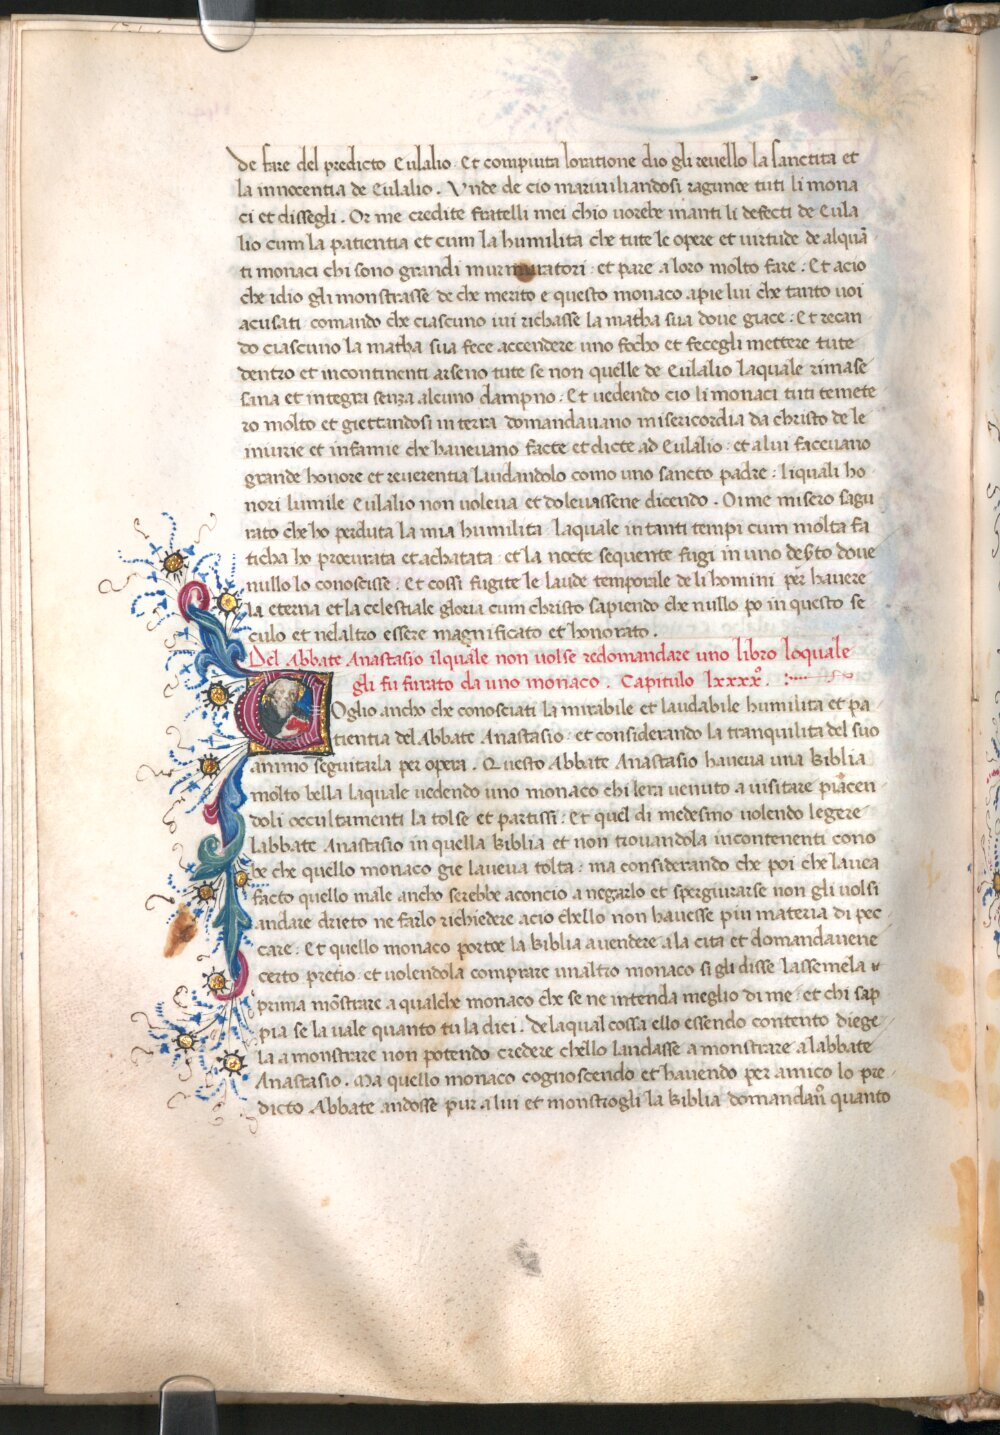 de fare del predicto Eulalio. Et compiuta loratione dio gli reuello la sanctita et
la innocentia de Eulalio. Vnde de cio marauiliandosi ragunoe tuti li mona
ci et dissegli. Or me credite fratelli mei chio uorebe inanti li defecti de Eula
lio cum la patientia et cum la humilita che tute le opere et uirtude de alquā
ti monaci chi sono grandi murmuratori et pare a loro molto fare. Et acio
che idio gli monstrasse de che merito e questo monaco apie lui che tanto uoi
acusati comando che ciascuno iui richasse la matha sua doue giace. Et recan
do ciascuno la matha sua fece accendere uno focho et fecegli mettere tute
dentro et incontinenti arseno tute se non quelle de Eulalio laquale rimase
sana et integra senza alcuno dampno. Et uedendo cio li monaci tuti temete
ro molto et giettandosi in terra domandauano misericordia da christo de le
iniurie et infamie che haueuano facte et dicte ad Eulalio et a lui faceuano
grande honore et reuerentia laudandolo como uno sancto padre. liquali ho
nori lumile Eulalio non uoleua et doleuassene dicendo. Oime misero sagu
rato che ho perduta la mia humilita laquale in tanti tempi cum molta fa
ticha ho procurata et achatata et la nocte sequente fugi in uno desto doue
nullo lo conoscisse. Et cossi fugite le laude temporale de li homini per hauere
la eterna et la celestiale gloria cum christo sapiendo che nullo po in questo se
culo et nelaltro essere magnificato et honorato.
Del Abbate Anastasio ilquale non uolse redomandare uno libro loquale
gli fu furato da uno monaco. Capitulo lxxxxº.
Voglio ancho che conosciati la mirabile et laudabile humilita et pa
tientia del Abbate Anastasio et considerando la tranquilita del suo
animo seguitarla per opera. Questo Abbate Anastasio haueua una Biblia
molto bella laquale uedendo uno monaco chi lera uenuto a uisitare piacen
doli occultamenti la tolse et partissi. Et quel di medesimo uolendo legere
labbate Anastasio in quella Biblia et non trouandola incontenenti cono
be che quello monaco gie laueua tolta. ma considerando che poi che lauea
facto quello male ancho serebbe aconcio a negarlo et spergiurarse non gli uolsi
andare drieto ne farlo richiedere acio chello non hauesse piu materia di pec
care. Et quello monaco portoe la Biblia a uendere a la cita et domandauene
certo pretio et uolendola comprare unaltro monaco si gli disse lassemela
prima mōstrare a qualche monaco che se ne intenda meglio di me et chi sap
pia se la uale quanto tu la dici. Delaqual cossa ello essendo contento diege
la a monstrare non potendo credere chello landasse a monstrare a labbate
Anastasio. Ma quello monaco cognoscendo et hauendo per amico lo pre
dicto Abbate andosse pur a lui et monstrogli la Biblia domandanº quanto